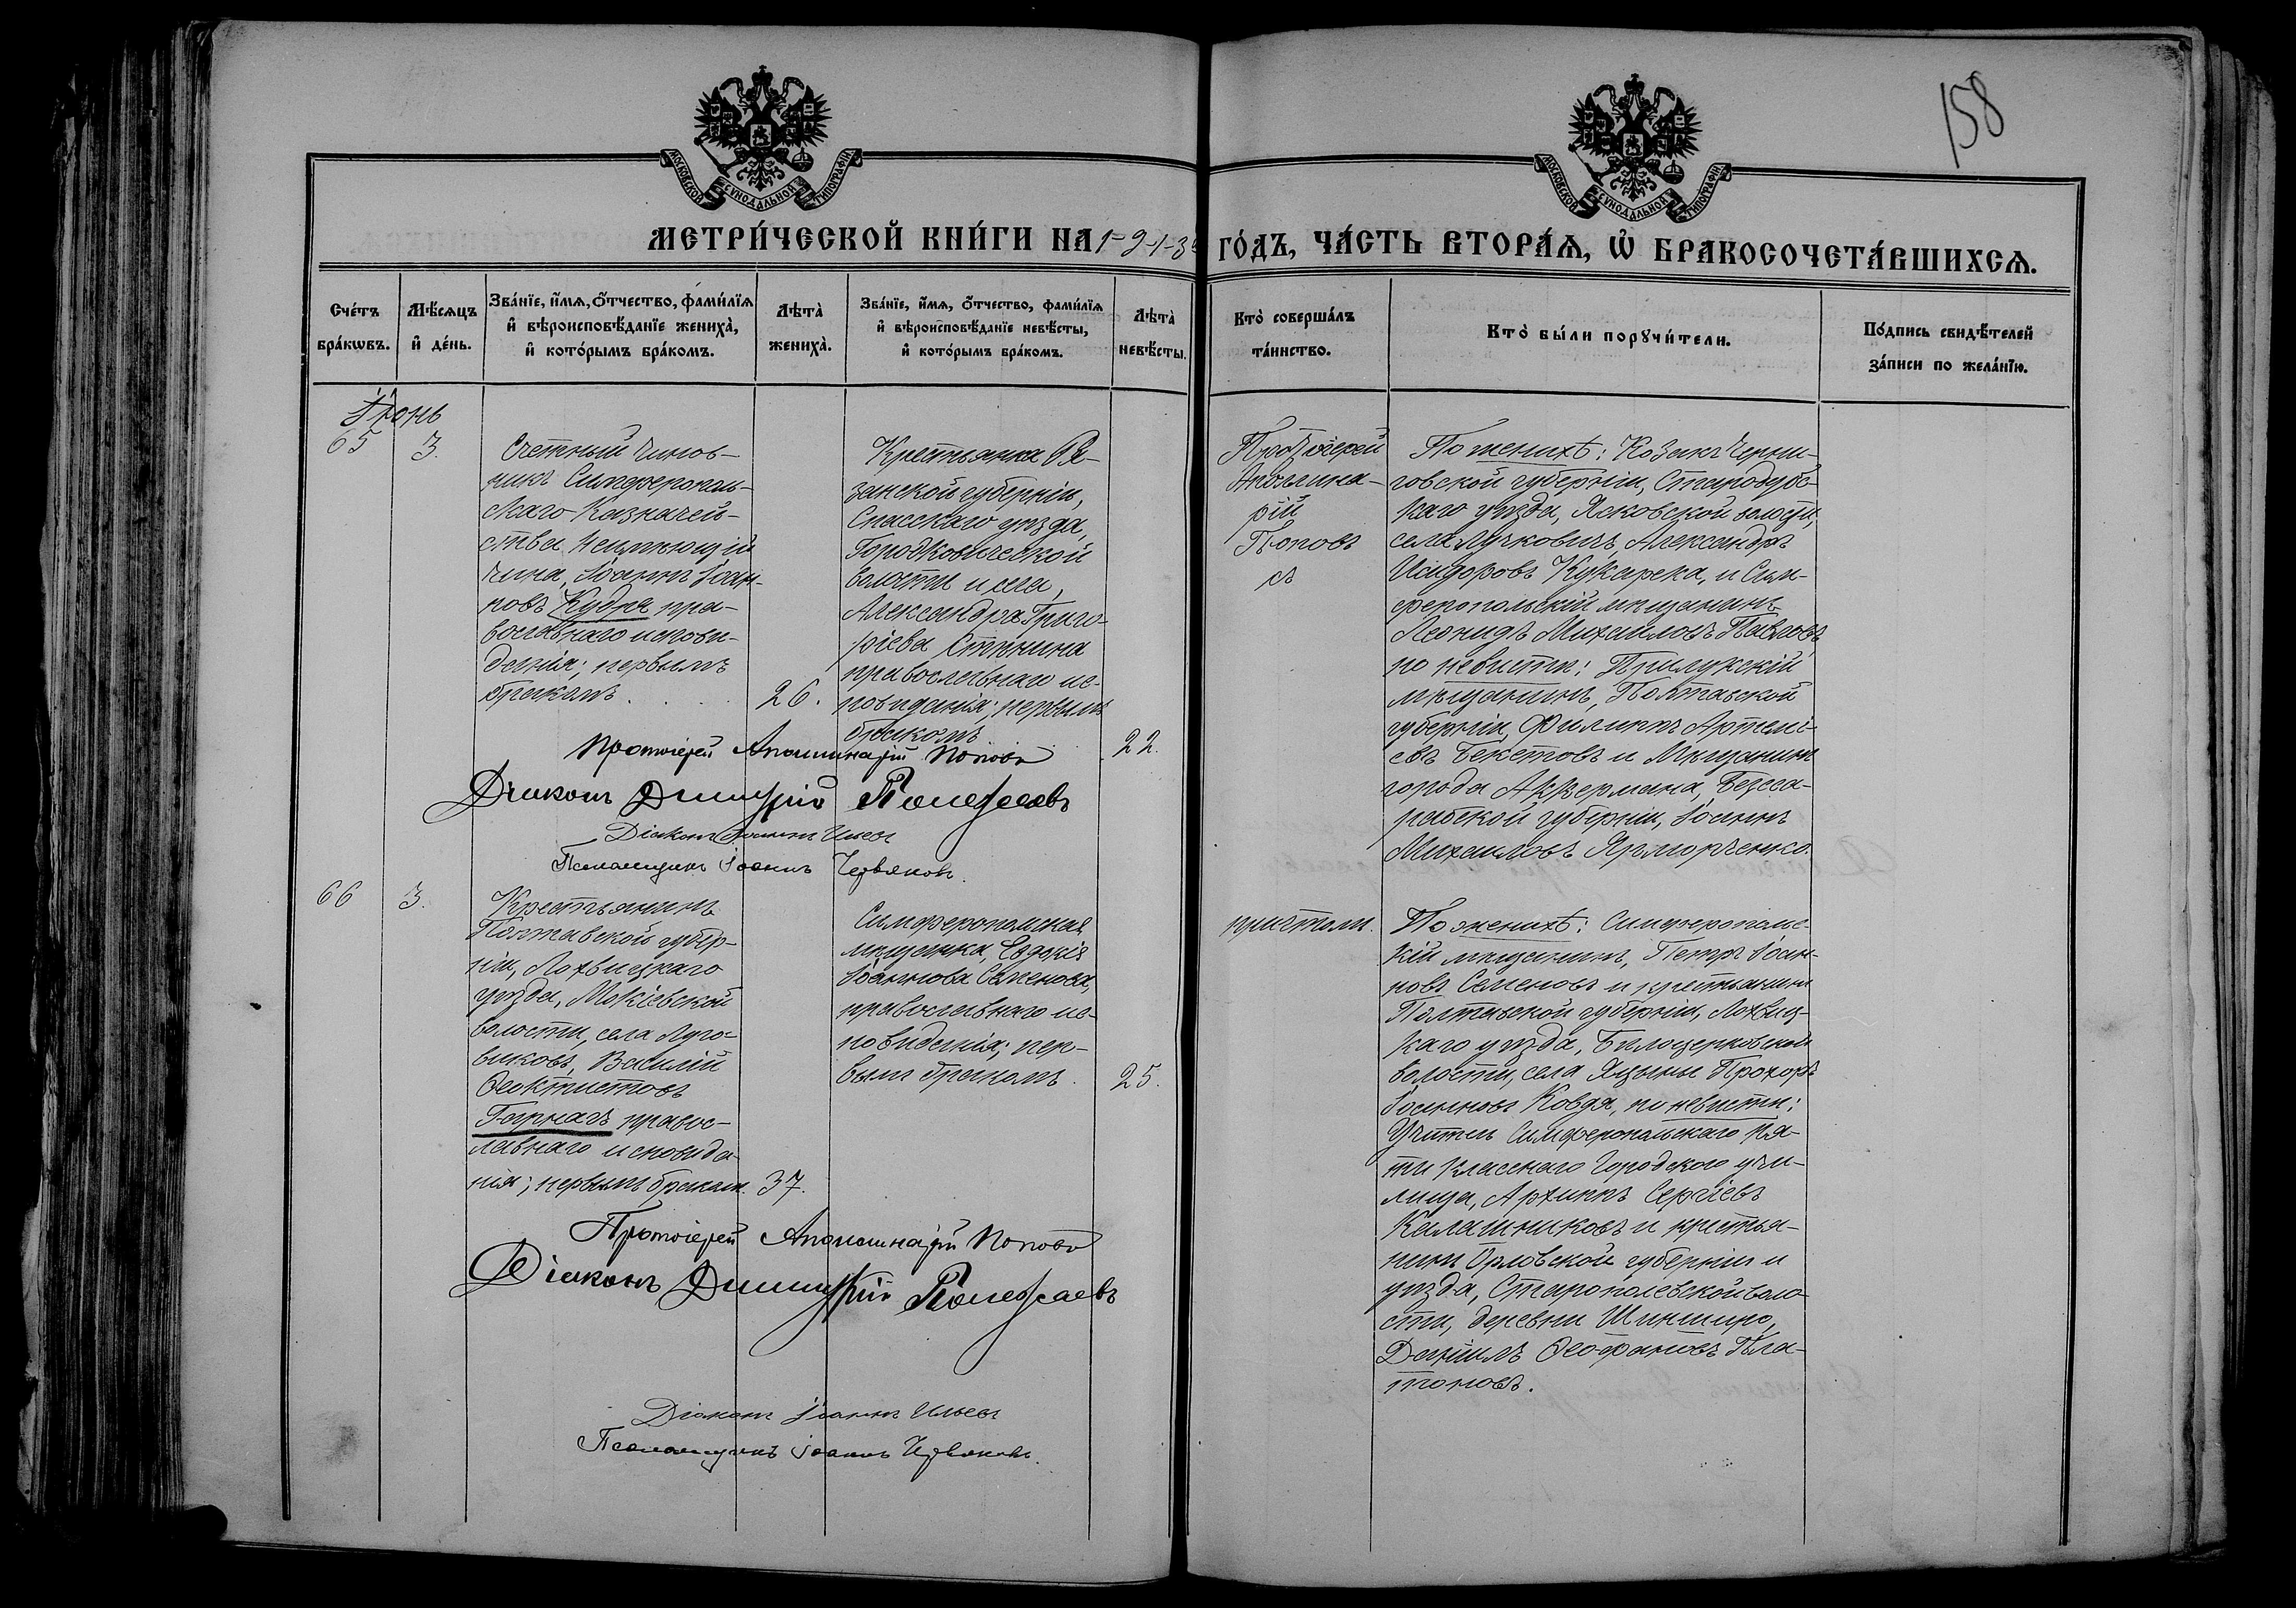 158
МОСКОВСКОЙ СУНОДАЛЬНОЙ ТИПОГРАФІИ
МОСКОВСКОЙ СУНОДАЛЬНОЙ ТИПОГРАФІИ
МЕТРИ́ЧЕСКОЙ КНИ́ГИ НА 1913 ГО́ДЪ, ЧА́СТЬ ВТОРА́Ѧ, Ѽ БРАКОСОЧЕТА́ВШИХСѦ.
Сче́тъ
бра́кѡвъ.
Мѣ́сѧцъ
и҆ де́нь.
Зва́нїе, и҆́мѧ, ѻ҆́тчество, фами́лїѧ
и҆ вѣроисповѣ́данїе жениха̀,
и҆ кото́рымъ бра́комъ.
Лѣта̀
жениха̀.
Зва́нїе, и҆́мѧ, ѻ҆́тчество, фами́лїѧ
и҆ вѣроисповѣ́данїе невѣ́сты,
и҆ кото́рымъ бра́комъ.
Лѣта̀
невѣ́сты.
Кто̀ соверша́лъ
та́инство.
Кто̀ бы́ли порꙋчи́тели.
По́дпись свидѣ́телей
за́писи по жела́нїю.
Іюнь
65
3.
Счетный Чинов-
никъ Симферополь-
скаго Казначей-
ства неимѣющій
чина, Іоаннъ Іоан-
новъ Кудря пра-
вославнаго исповѣ-
данія; первымъ
бракомъ.
26.
Крестьянка Ря-
занской губерніи,
Спасскаго уѣзда,
Городковической
волости и села,
Александра Григо-
ріева Стѣнина
православнаго ис-
повѣданія; первымъ
бракомъ
22.
Протоіерей
Аполлина-
рій
Поповъ
съ
По женихѣ: Козакъ Черни-
говской губерніи, Стародубс-
каго уѣзда, Ясковской волости,
села Лучковичъ, Александръ
Исидоровъ Кукарека, и Сим-
феропольскій мѣщанинъ
Леонидъ Михаиловъ Павловъ,
по невѣсти: Прилукскій
мѣщанинъ, Полтавской
губерніи, Филиппъ Артемі-
евъ Бекетовъ и Мѣщанинъ
города Аккермана, Бесса-
рабской губерніи, Іоаннъ
Михаиловъ Ярморченко.
Протоіерей Аполлинарій Поповъ
Діаконъ Димитрій Полежаевъ
Діаконъ Іоаннъ Ильевъ
Псаломщикъ Іоаннъ Червяковъ.
66
3.
Крестьянинъ
Полтавской губер-
ніи, Лохвицкаго
уѣзда, Мокіевской
волости, села Луго-
виковъ, Василій
Ѳеоктистовъ
Горнагъ правос-
лавнаго исповѣда-
нія; первымъ бракомъ.
37.
Симферопольская
мѣщанка, Евдокія
Іоаннова Семенова,
православнаго ис-
повѣданія; пер-
вымъ бракомъ.
25.
причтомъ.
По женихѣ: Симферопольс-
кій мѣщанинъ, Петръ Іоан-
новъ Семеновъ и крестьянинъ
Полтавской губерніи, Лохвиц-
каго уѣзда, Бѣлоцерковской
волости, села Яцыны Прохоръ
Іоанновъ Ковдя, по невѣсти:
Учитель Симферопольскаго Пя-
ти класснаго Городского учи-
лища, Архиппъ Сергіевъ
Калашниковъ и крестья-
нинъ Орловской губерніи и
уѣзда, Старополевской воло-
сти, деревни
Даніилъ Ѳеофановъ Пла-
тоновъ.
Протоіерей Аполлинарій Поповъ
Діаконъ Димитрій Полежаевъ
Діаконъ Іоаннъ Ильевъ
Псаломщикъ Іоаннъ Червяковъ.